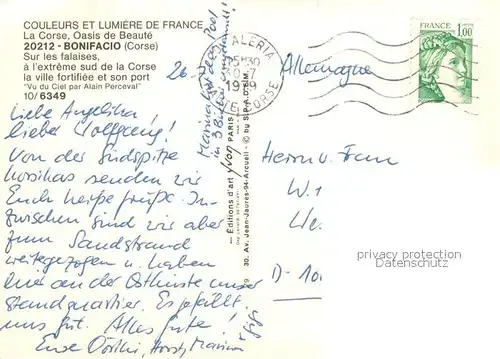 COULEURS ET LUMIÈRE DE FRANCE
La Corse, Oasis de Beauté
20212 - BONIFACIO (Corse)
Sur les falaises,
à l'extrême sud de la Corse
la ville fortifiée et son port
"Vu du Ciel par Alain Perceval"
10/6349
26.
Liebe Angelika!
lieber Wolfgang!
Von der Südspitze
Korsikas senden wir
Euch heiße Grüße. In-
zwischen sind wir aber
zum Sandstrand
weitergezogen u. haben
hier an der Ostküste unser
Standquartier. Es gefällt
uns gut. Alles Gute!
Eure Dörthi, Horst, Marina
in 3 Buchten
Éditions d'art Yvon PARIS
30, Av. Jean-Jaurès-94-Arcueil - © by S.P.A.D.E.M.
ALERIA
1979
HAUTE CORSE
FRANCE
1,00
Allemagne
Herrn u. Frau
W.
D-
privacy protection
Datenschutz